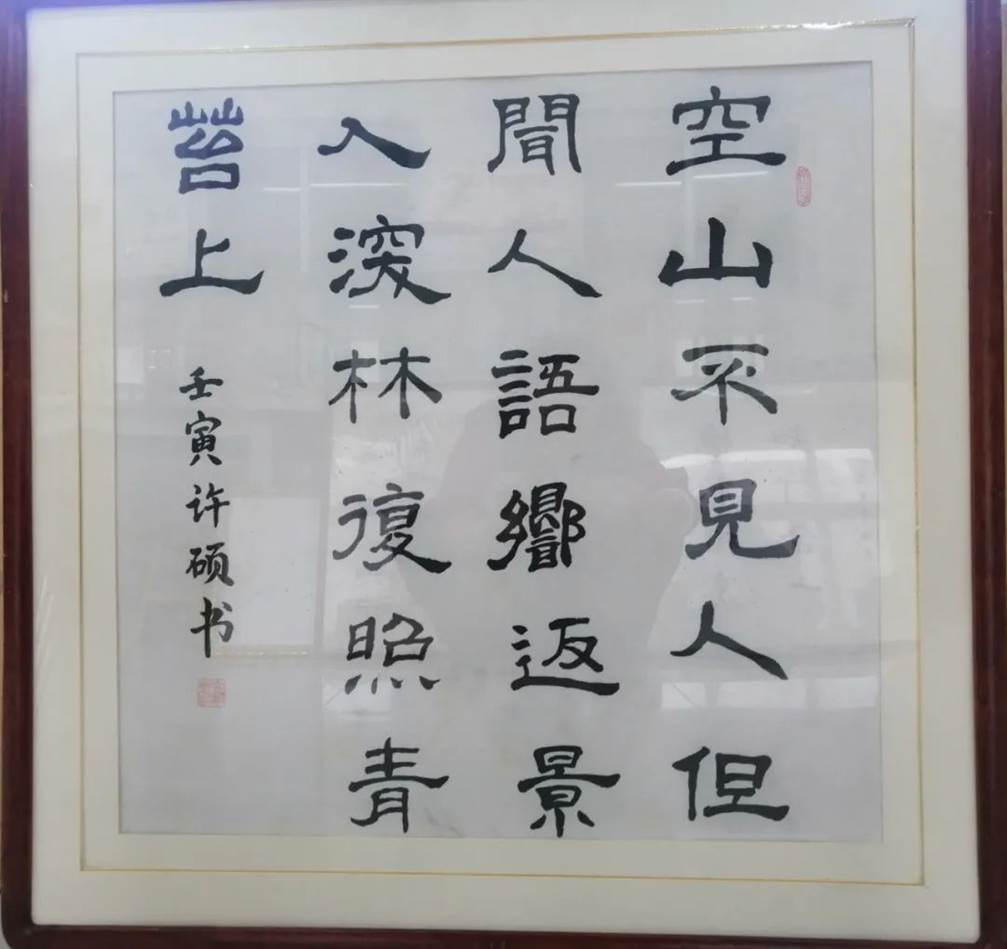 空山不見人但
聞人語響返景
入深林復照青
苔上
壬寅许硕书